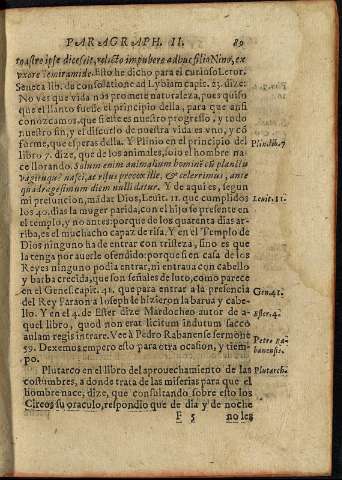 PARAGRAPH. II. 89
roastro ipse discesit, relicto impubere adhuc filio Nino, ex
vxore Semiramide. Esto he dicho para el curioso Letor.
Seneca lib. de consolatione ad Lybiam capit. 23. dize:
No ves que vida nos promete naturaleza, pues quiso
que el llanto fuesse el principio della, para que ansi
conozcamos, que si este es nuestro progresso, y todo
nuestro fin, y el discurso de nuestra vida es vno, y cõ
forme, que esperas della. Y Plinio en el principio del
libro 7. dize, que de los animales, solo el hombre na-
Plin. lib. 7
ce llorando. Solum enim animalium hominẽ cũ planctu
vagituque nasci, ac risus præcox ille, & celerrimus, ante
quadragesimum diem nulli datur. Y de aqui es, segun
mi presuncion, mãdar Dios, Leuit. 11. que cumplidos
Leuit. 11.
los 40. dias la muger parida, con el hijo se presente en
el templo, y no antes: porque de los quarenta dias ar-
riba, es el muchacho capaz de risa. Y en el Templo de
Dios ninguno ha de entrar con tristeza, sino es que
la tenga por auerle ofendido: porque si en casa de los
Reyes ninguno podia entrar, ni entraua con cabello
y barba crecida, que son señales de luto, como parece
en el Genes. capit. 41. que para entrar a la presencia
Gen. 41.
del Rey Faraon a Ioseph le hizieron la barua y cabe-
llo. Y en el 4. de Ester dize Mardocheo autor de a-
Ester. 4.
quel libro, quod non erat licitum indutum sacco
aulam regis intrare. Vee à Pedro Rabanense sermone
Petro ra-
banensis.
59. Dexemos empero esto para otra ocasion, y tiem-
po.
Plutarco en el libro del aprouechamiento de las
Plutarch.
costumbres, a donde trata de las miserias para que el
hombre nace, dize, que consultando sobre esto los
Gregos su oraculo, respondio que de dia y de noche
F 5 no les